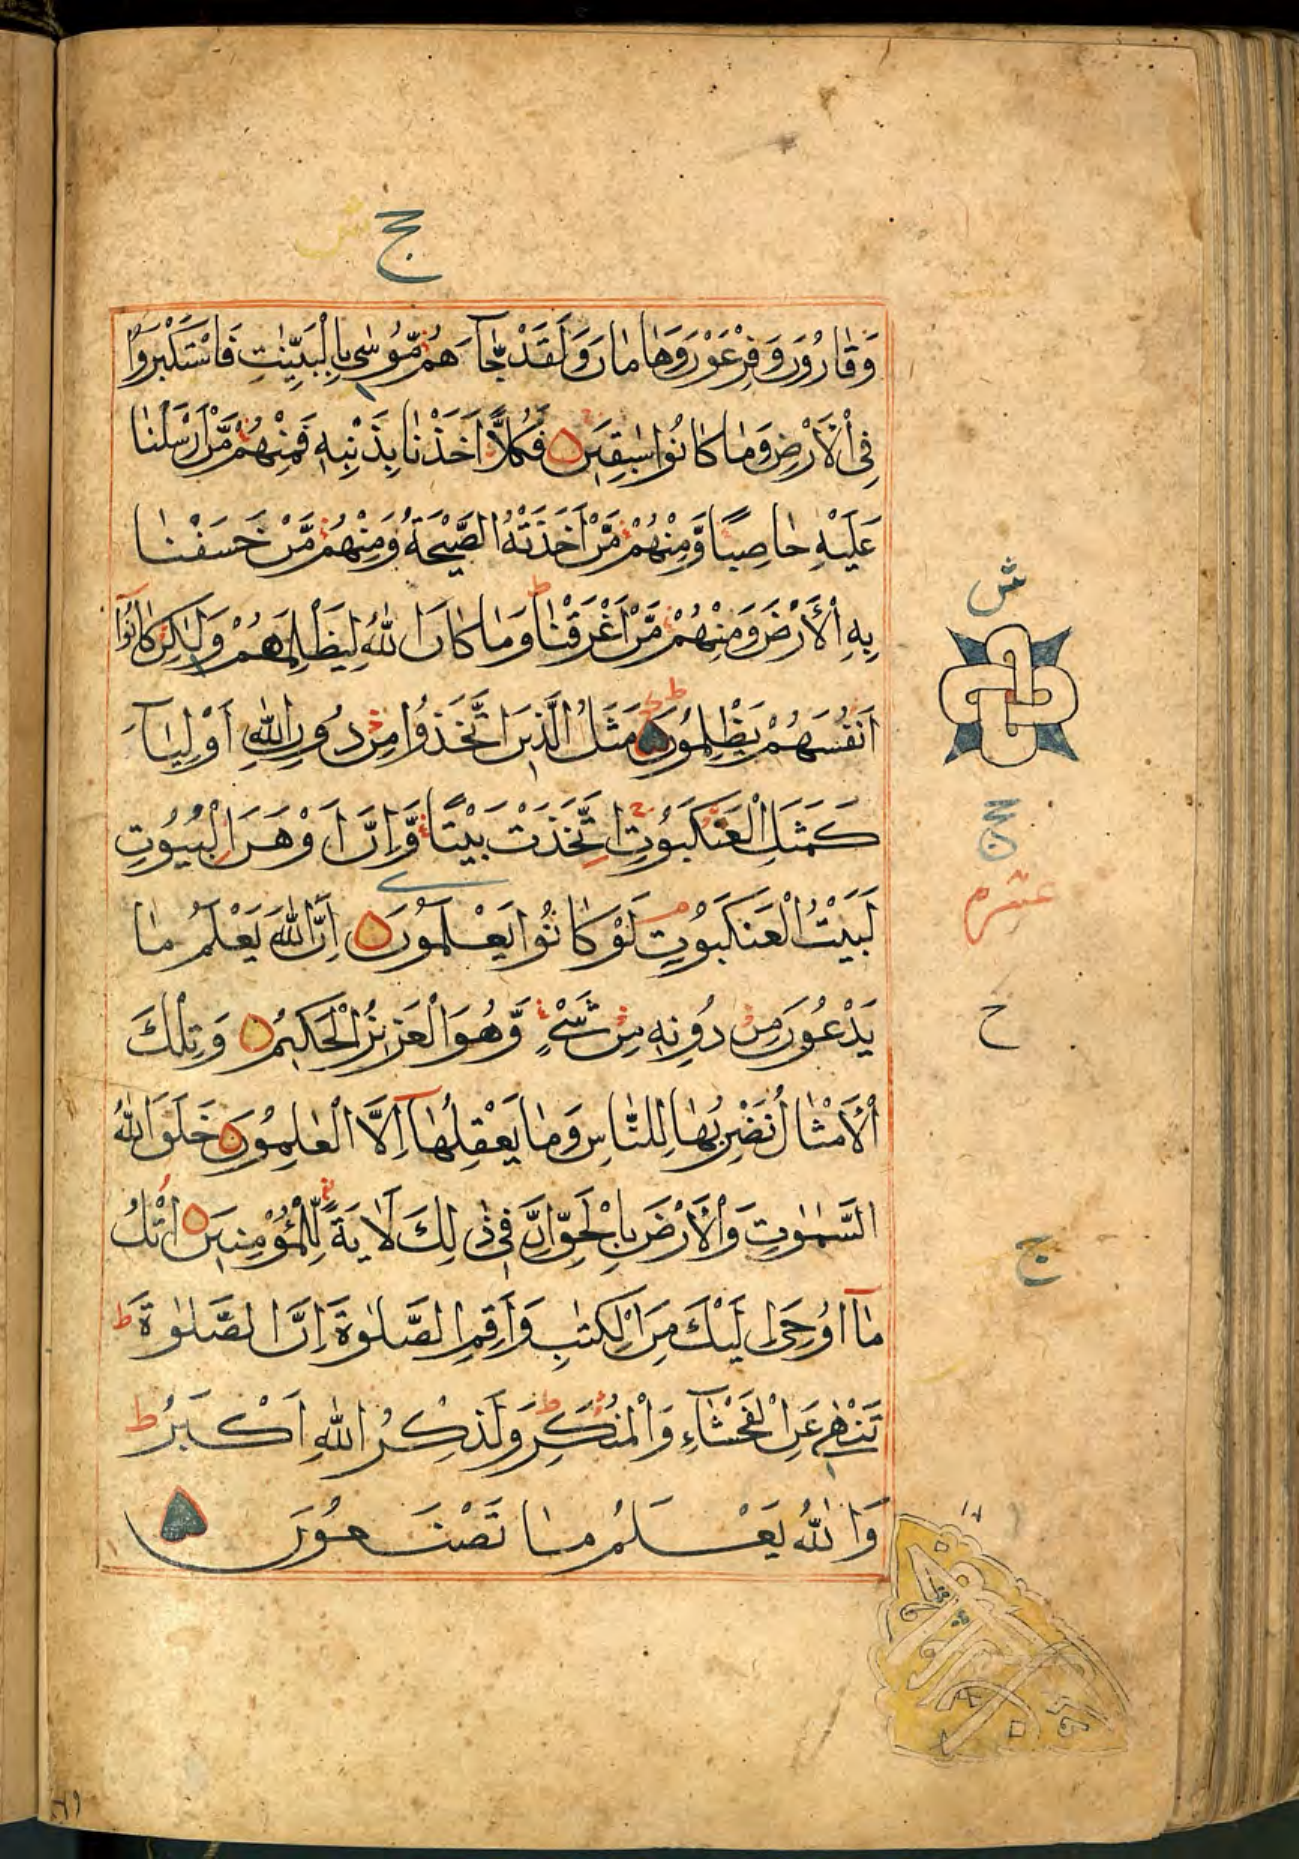 ش ج
وَقَارُونَ وَفِرْعَوْنَ وَهَامَانَ وَلَقَدْ جَآءَهُمْ مُّوسٰى بِالْبَيِّنٰتِ فَاسْتَكْبَرُوا
فِى الْأَرْضِ وَمَا كَانُوا سٰبِقِينَ فَكُلًّا اَخَذْنَا بِذَنْبِهٖ فَمِنْهُمْ مَّنْ اَرْسَلْنَا
عَلَيْهِ حَاصِبًا وَّمِنْهُمْ مَّنْ اَخَذَتْهُ الصَّيْحَةُ وَمِنْهُمْ مَّنْ خَسَفْنَا
بِهِ الْأَرْضَ وَمِنْهُمْ مَّنْ اَغْرَقْنَا ط وَمَا كَانَ اللّٰهُ لِيَظْلِمَهُمْ وَلٰكِنْ كَانُوٓا
اَنْفُسَهُمْ يَظْلِمُونَ مَثَلُ الَّذِينَ اتَّخَذُوا مِنْ دُونِ اللّٰهِ اَوْلِيَآءَ
كَمَثَلِ الْعَنْكَبُوتِ ج اِتَّخَذَتْ بَيْتًا وَّاِنَّ اَوْهَنَ الْبُيُوتِ
لَبَيْتُ الْعَنْكَبُوتِ م لَوْ كَانُوا يَعْلَمُونَ اِنَّ اللّٰهَ يَعْلَمُ مَا
يَدْعُونَ مِنْ دُونِهٖ مِنْ شَىْءٍ وَّهُوَ الْعَزِيزُ الْحَكِيمُ وَتِلْكَ
الْأَمْثَالُ نَضْرِبُهَا لِلنَّاسِ وَمَا يَعْقِلُهَآ اِلَّا الْعٰلِمُونَ خَلَقَ اللّٰهُ
السَّمٰوٰتِ وَالْأَرْضَ بِالْحَقِّ اِنَّ فِى ذٰلِكَ لَاٰيَةً لِّلْمُؤْمِنِينَ اُتْلُ
مَآ اُوحِىَ اِلَيْكَ مِنَ الْكِتٰبِ وَاَقِمِ الصَّلٰوةَ اِنَّ الصَّلٰوةَ ط
تَنْهٰى عَنِ الْفَحْشَآءِ وَالْمُنْكَرِ ط وَلَذِكْرُ اللّٰهِ اَكْبَرُ ط
وَاللّٰهُ يَعْلَمُ مَا تَصْنَعُونَ
ش
عشرم
ح
ج